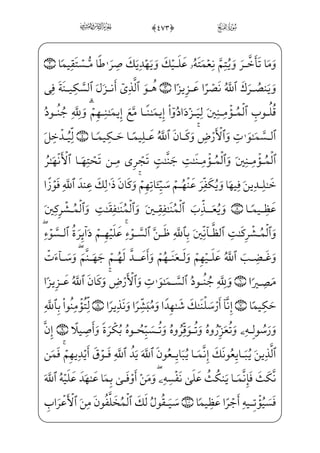 ﴿٤٧٣﴾
وَمَا تَأَخَّرَ وَيُتِمَّ نِعْمَتَهُۥ عَلَيْكَ وَيَهْدِيَكَ صِرَٰطًا مُّسْتَقِيمًا ۝٢
وَيَنصُرَكَ ٱللَّهُ نَصْرًا عَزِيزًا ۝٣ هُوَ ٱلَّذِىٓ أَنزَلَ ٱلسَّكِينَةَ فِى
قُلُوبِ ٱلْمُؤْمِنِينَ لِيَزْدَادُوٓا۟ إِيمَٰنًا مَّعَ إِيمَٰنِهِمْ ۗ وَلِلَّهِ جُنُودُ
ٱلسَّمَٰوَٰتِ وَٱلْأَرْضِ ۚ وَكَانَ ٱللَّهُ عَلِيمًا حَكِيمًا ۝٤ لِّيُدْخِلَ
ٱلْمُؤْمِنِينَ وَٱلْمُؤْمِنَٰتِ جَنَّٰتٍ تَجْرِى مِن تَحْتِهَا ٱلْأَنْهَٰرُ
خَٰلِدِينَ فِيهَا وَيُكَفِّرَ عَنْهُمْ سَيِّـَٔاتِهِمْ ۚ وَكَانَ ذَٰلِكَ عِندَ ٱللَّهِ فَوْزًا
عَظِيمًا ۝٥ وَيُعَذِّبَ ٱلْمُنَٰفِقِينَ وَٱلْمُنَٰفِقَٰتِ وَٱلْمُشْرِكِينَ
وَٱلْمُشْرِكَٰتِ ٱلظَّآنِّينَ بِٱللَّهِ ظَنَّ ٱلسَّوْءِ ۚ عَلَيْهِمْ دَآئِرَةُ ٱلسَّوْءِ ۖ
وَغَضِبَ ٱللَّهُ عَلَيْهِمْ وَلَعَنَهُمْ وَأَعَدَّ لَهُمْ جَهَنَّمَ ۖ وَسَآءَتْ
مَصِيرًا ۝٦ وَلِلَّهِ جُنُودُ ٱلسَّمَٰوَٰتِ وَٱلْأَرْضِ ۚ وَكَانَ ٱللَّهُ عَزِيزًا
حَكِيمًا ۝٧ إِنَّآ أَرْسَلْنَٰكَ شَٰهِدًا وَمُبَشِّرًا وَنَذِيرًا ۝٨ لِّتُؤْمِنُوا۟ بِٱللَّهِ
وَرَسُولِهِۦ وَتُعَزِّرُوهُ وَتُوَقِّرُوهُ وَتُسَبِّحُوهُ بُكْرَةً وَأَصِيلًا ۝٩ إِنَّ
ٱلَّذِينَ يُبَايِعُونَكَ إِنَّمَا يُبَايِعُونَ ٱللَّهَ يَدُ ٱللَّهِ فَوْقَ أَيْدِيهِمْ ۚ فَمَن
نَّكَثَ فَإِنَّمَا يَنكُثُ عَلَىٰ نَفْسِهِۦ ۖ وَمَنْ أَوْفَىٰ بِمَا عَٰهَدَ عَلَيْهُ ٱللَّهَ
فَسَيُؤْتِيهِ أَجْرًا عَظِيمًا ۝١٠ سَيَقُولُ لَكَ ٱلْمُخَلَّفُونَ مِنَ ٱلْأَعْرَابِ